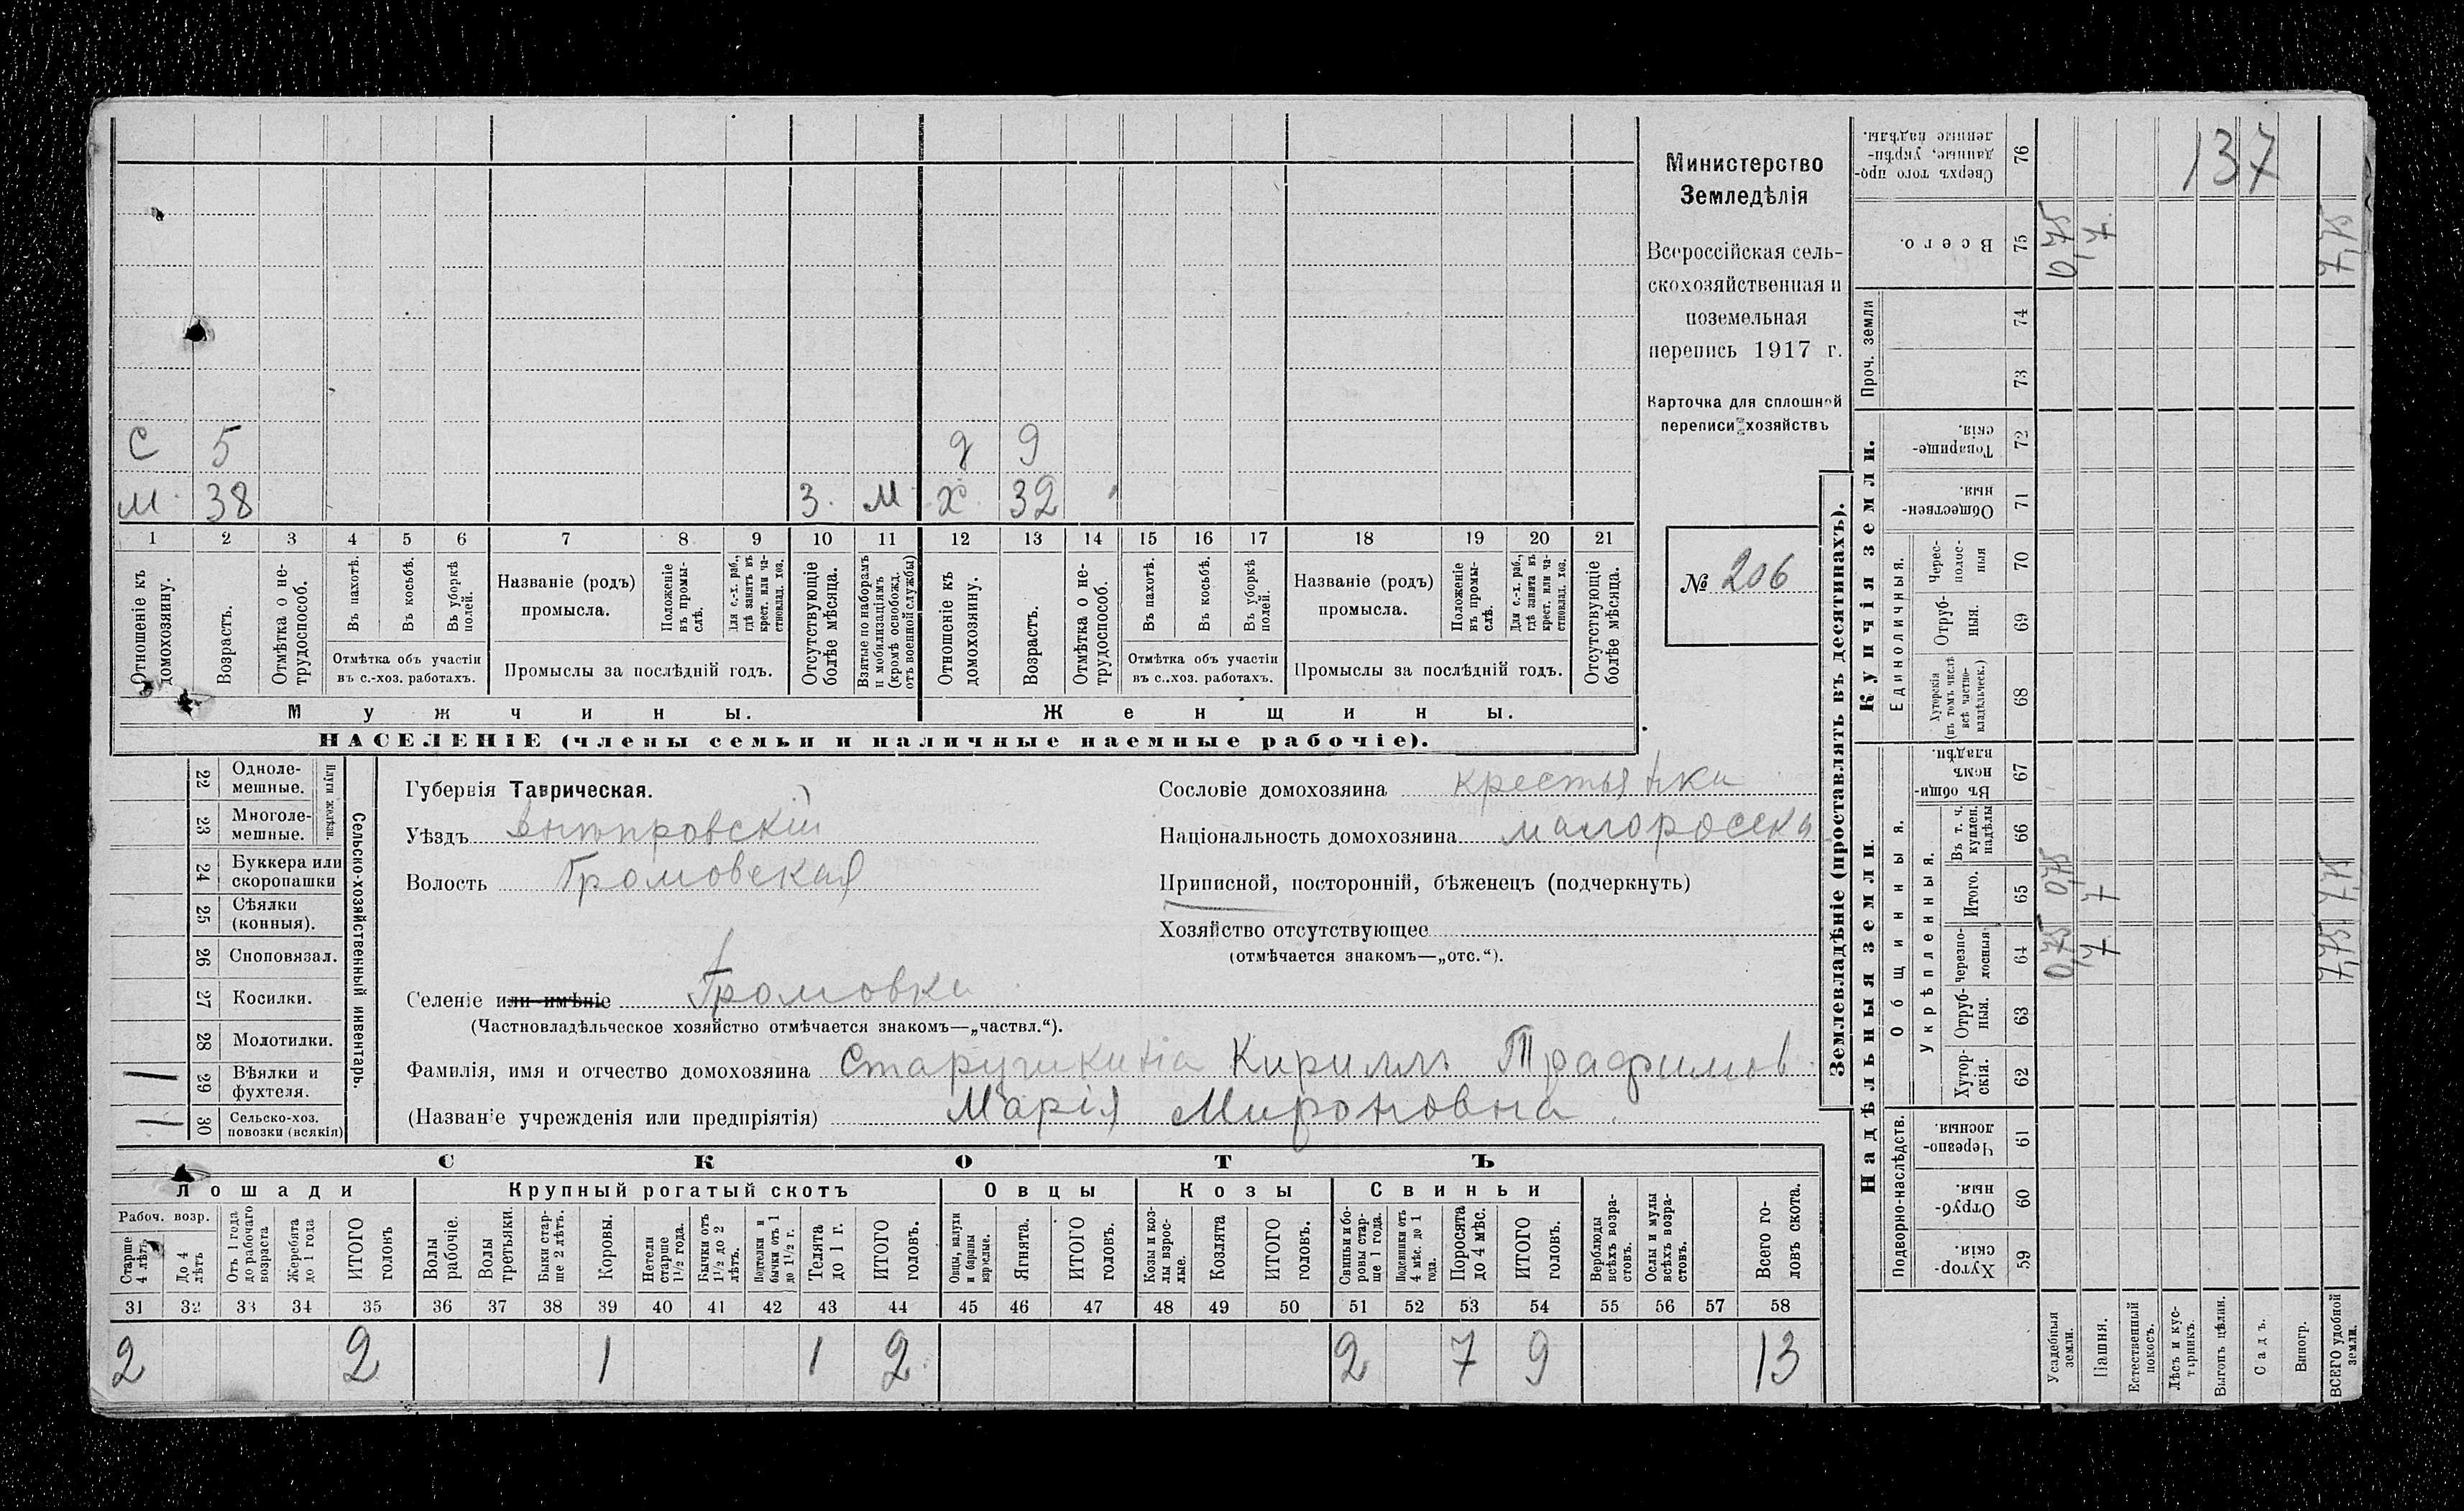 Министерство
Земледѣлія
Всероссійская сель-
скохозяйственная и
поземельная
перепись 1917 г.
Карточка для сплошной
переписи хозяйствъ
№ 206
С 5 д 9
м. 38 3. М х. 32
1 2 3 4 5 6 7 8 9 10 11 12 13 14 15 16 17 18 19 20 21
Отношеніе къ домохозяину.
Возрастъ.
Отмѣтка о не-трудоспособ.
Въ пахотѣ.
Въ косьбѣ.
Въ уборкѣ полей.
Отмѣтка объ участіи
въ с.-хоз. работахъ.
Названіе (родъ)
промысла.
Положеніе въ промы-слѣ.
Для с.-х. раб., гдѣ занятъ въ крест. или ча-стновлад. хоз.
Промыслы за послѣдній годъ.
Отсутствующіе болѣе мѣсяца.
Взятые по наборамъ и мобилизаціямъ (кромѣ освобожд. отъ военной службы)
Отношеніе къ домохозяину.
Возрастъ.
Отмѣтка о не-трудоспособ.
Въ пахотѣ.
Въ косьбѣ.
Въ уборкѣ полей.
Отмѣтка объ участіи
въ с..хоз. работахъ.
Названіе (родъ)
промысла.
Положеніе въ промы-слѣ.
Для с.-х. раб., гдѣ занята въ крест. или ча-стновлад. хоз.
Промыслы за послѣдній годъ.
Отсутствующіе болѣе мѣсяца.
Мужчины. Женщины.
НАСЕЛЕНІЕ (члены семьи и наличные наемные рабочіе).
Сельско-хозяйственный инвентарь.
Плуги желѣзн.
22 Одноле-мешные.
23 Многоле-мешные.
24 Буккера или скоропашки
25 Сѣялки (конныя).
26 Сноповязал.
27 Косилки.
28 Молотилки.
1 29 Вѣялки и фухтеля.
1 30 Сельско-хоз. повозки (всякія)
Губернія Таврическая.
Уѣздъ Днѣпровскій
Волость Громовская
Селеніе или имѣніе Громовка
(Частновладѣльческое хозяйство отмѣчается знакомъ—„частвл.“).
Сословіе домохозяина крестьянка
Національность домохозяина малоросска
Приписной, посторонній, бѣженецъ (подчеркнуть)
Хозяйство отсутствующее
(отмѣчается знакомъ—„отс.“).
Фамилія, имя и отчество домохозяина Кириллъ Трафимов
(Названіе учрежденія или предпріятія) Марія Мироновна.
СКОТЪ
Лошади Крупный рогатый скотъ Овцы Козы Свиньи
Рабоч. возр.
Старше 4 лѣтъ
До 4 лѣтъ
Отъ 1 года до рабочаго возраста
Жеребята до 1 года
ИТОГО головъ
Волы рабочіе.
Волы третьяки.
Быки стар-ше 2 лѣтъ.
Коровы.
Нетели старше 1½ года.
Бычки отъ 1½ до 2 лѣтъ.
Подтелки и бычки отъ 1 до 1½ г.
Телята до 1 г.
ИТОГО головъ.
Овцы, валухи и бараны взрослые.
Ягнята.
ИТОГО головъ.
Козы и коз-лы взрос-лые.
Козлята
ИТОГО головъ.
Свиньи и бо-ровы стар-ше 1 года.
Подсвинки отъ 4 мѣс. до 1 года.
Поросята до 4 мѣс.
ИТОГО головъ.
Верблюды всѣхъ возра-стовъ.
Ослы и мулы всѣхъ возра-стовъ.
Всего го-ловъ скота.
31 32 33 34 35 36 37 38 39 40 41 42 43 44 45 46 47 48 49 50 51 52 53 54 55 56 57 58
2 2 1 1 2 2 7 9 13
Землевладѣніе (проставлять въ десятинахъ).
137
Сверхъ того про-данные, укрѣп-ленные надѣлы. 76
Всего. 75 0,75 7. 7,75
Проч. земли 74 73
Купчія земли.
Товарище-скія. 72
Обществен-ныя. 71
Единоличныя.
Черес-полос-ныя 70
Отруб-ныя. 69
Хуторскія (въ томъ числѣ всѣ частно-владѣльческ.) 68
Надѣльныя земли.
Общинныя.
Въ общи-номъ владѣн. 67
Укрѣпленныя.
Въ т. ч. куплен. надѣлы 66
Итого. 65 0,75 7 7,75
Черезпо-лосныя. 64 0,75 7 7,75
Отруб-ныя. 63
Хутор-скія. 62
Подворно-наслѣдств.
Черезпо-лосныя. 61
Отруб-ныя. 60
Хутор-скія. 59
Усадебныя земли.
Пашня.
Естественный покосъ.
Лѣсъ и кус-тарникъ.
Выгонъ цѣлин.
Садъ.
Виногр.
ВСЕГО удобной земли.